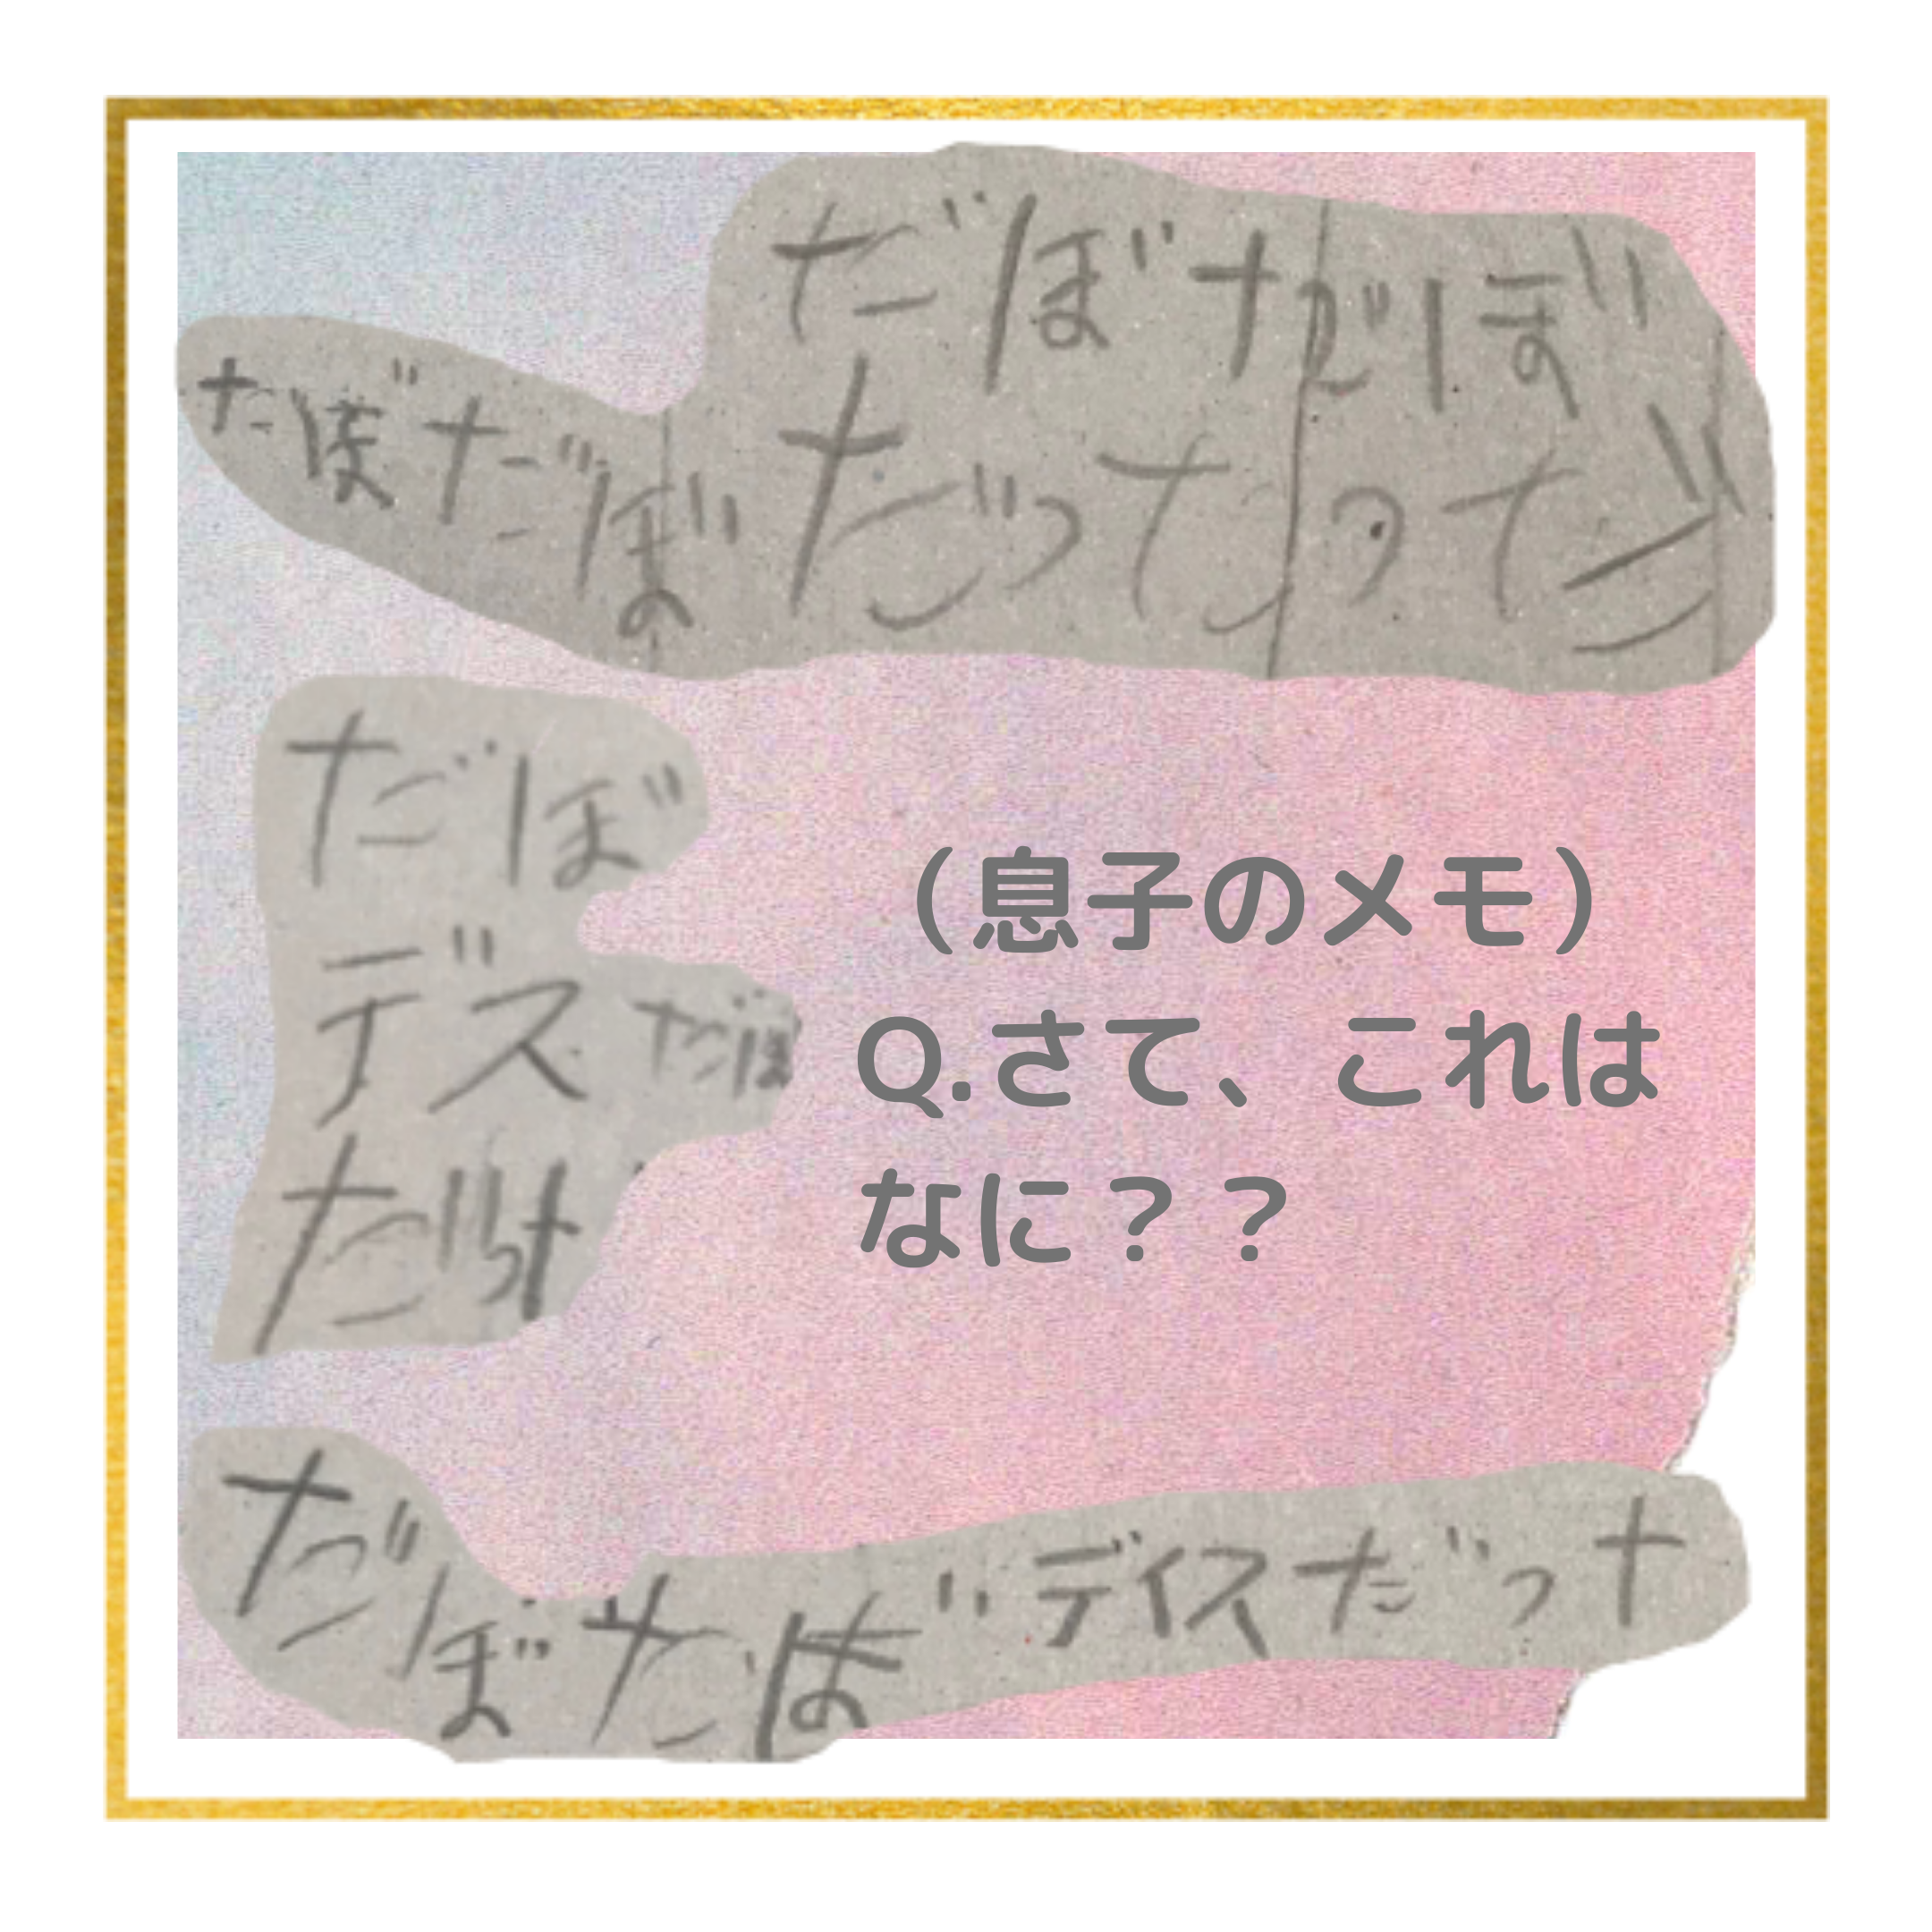 だぼだぼ
だぼだぼ
だったった
だぼ
デス だぼ
だった
（息子のメモ）
Q.さて、これは
なに？？
だぼだぼ ディスだった